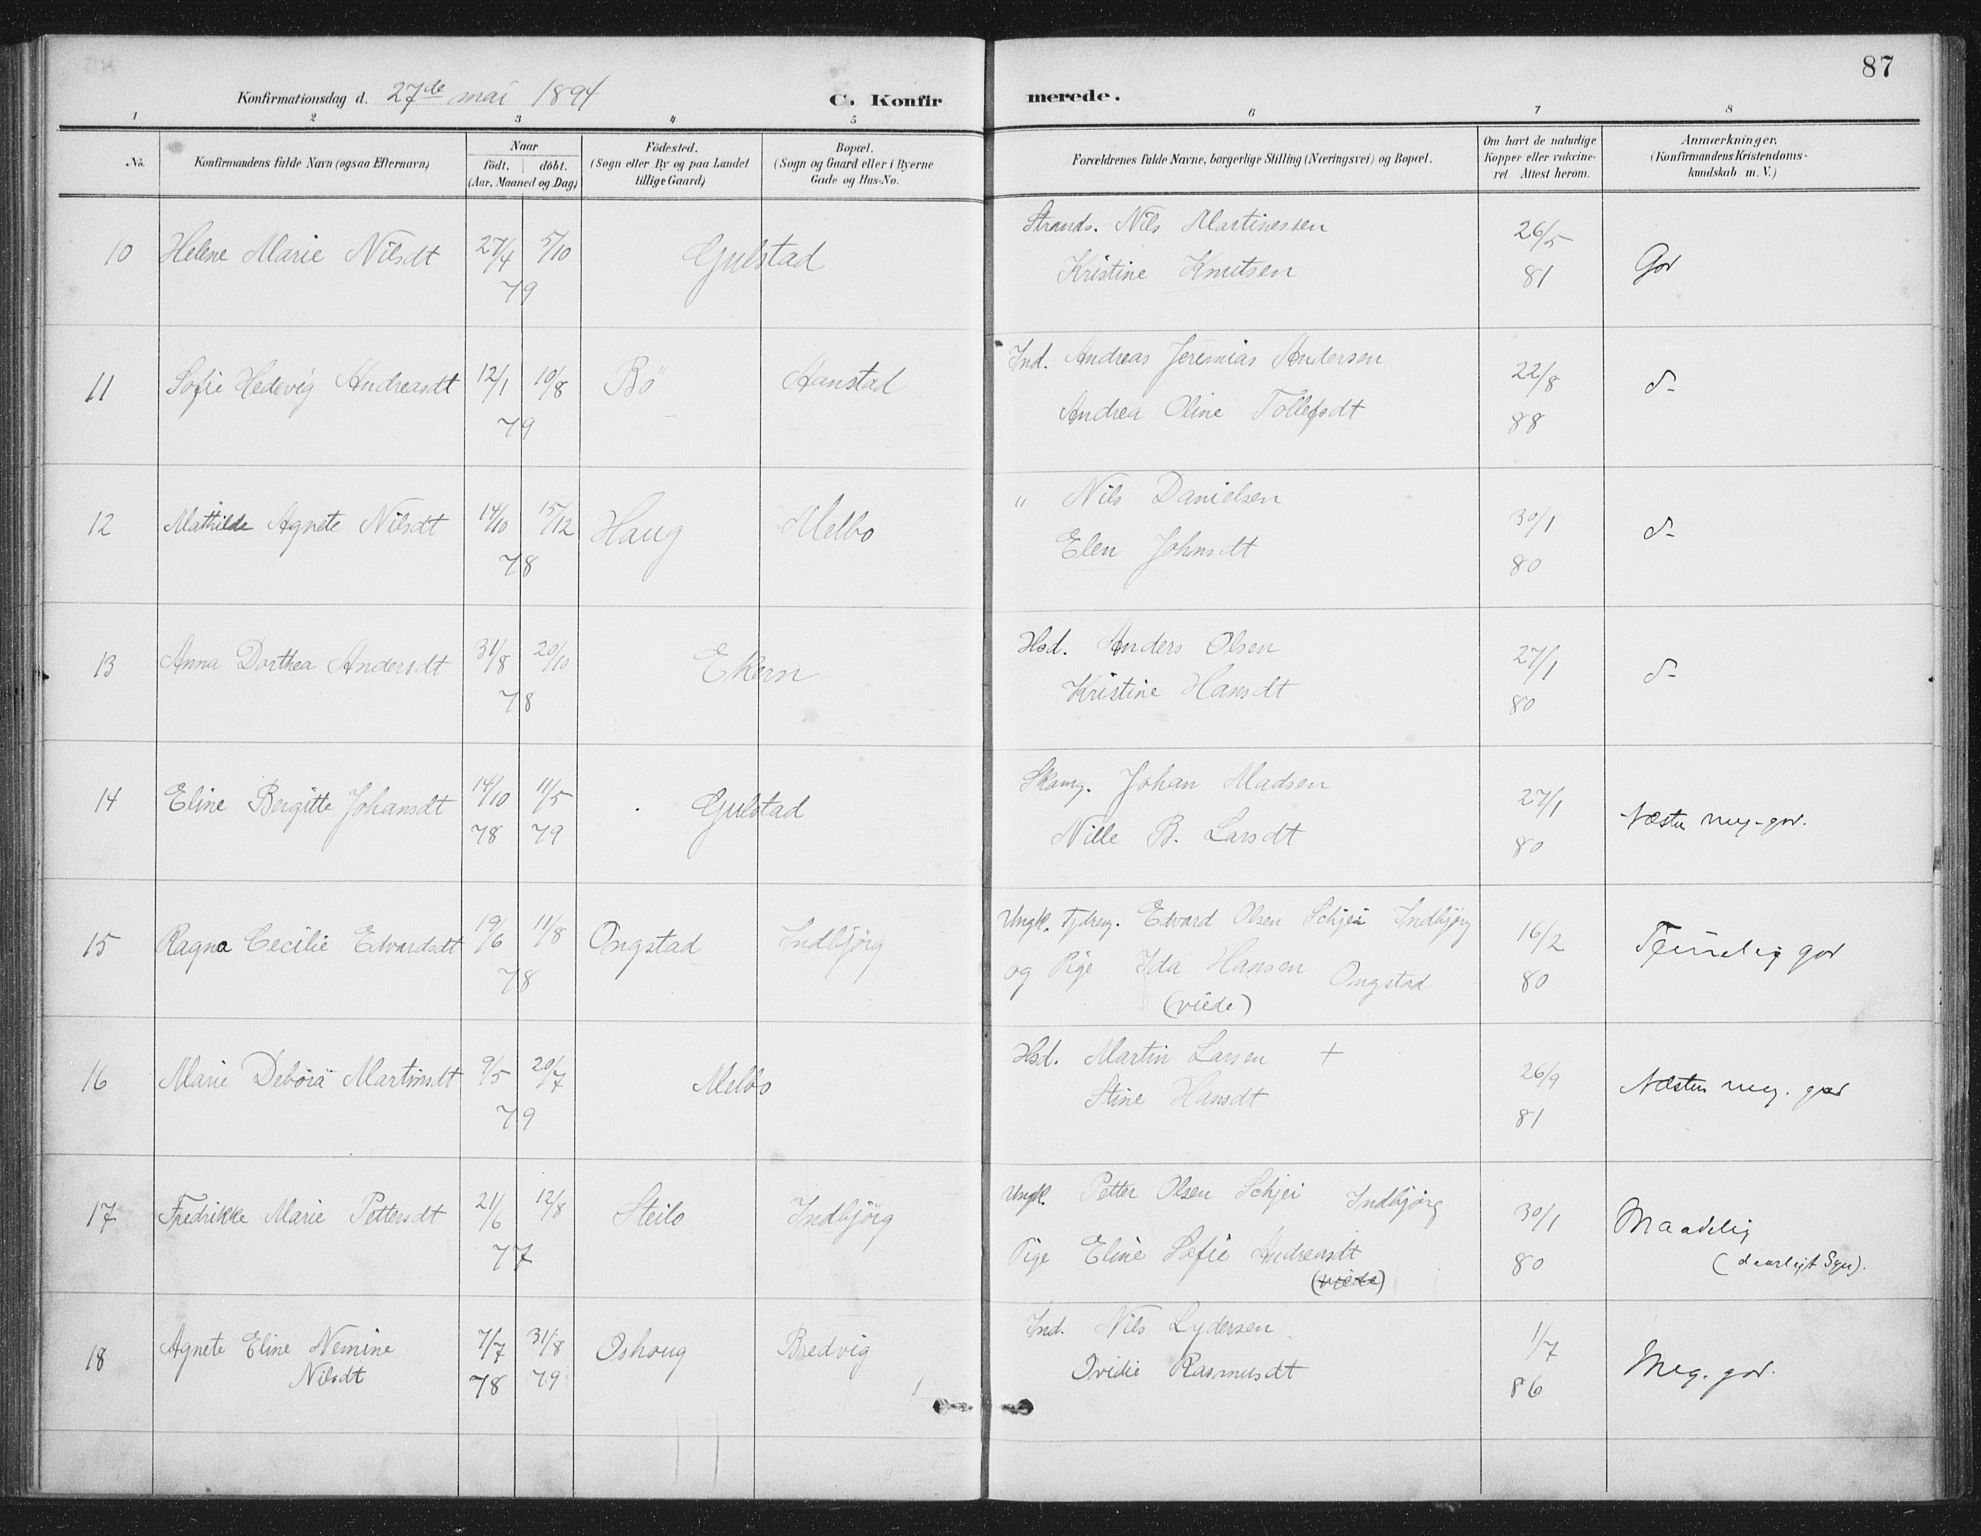 87
Konfirmationsdag d. 27de mai 1894
C. Konfirmerede.
1 2 3 4 5 6 7 8
No.
Konfirmandens fulde Navn (ogsaa Efternavn)
Naar
födt. döbt.
(Aar, Maaned og Dag)
Födested.
(Sogn eller By og paa Landet
tillige Gaard)
Bopæl.
(Sogn og Gaard eller i Byerne
Gade og Hus-No.
Forældrenes fulde Navne, borgerlige Stilling (Næringsvei) og Bopæl.
Om havt de naturlige
Kopper eller vakcine-
ret Attest herom.
Anmærkninger.
(Konfirmandens Kristendoms-
kundskab m. V.)
10 Helene Marie Nilsdt 27/4 5/10 Gulstad
79
Strands. Nils Martinessen 26/5
Kristine Knutsen 81 God
11 Sofie Hedevig Andreasdt 12/1 10/8 Bö Aanstad
79
Ind. Andreas Jeremias Andersen 22/8 d-
Andrea Oline Tollefsdt 88
12 Mathilde Agnete Nilsdt 14/10 15/12 Haug Melbo
78
" Nils Danielsen 30/1 d-
Elen Johnsdt 80
13 Anna Dorthea Andersdt 31/8 20/10 Ekern
78
Hsd. Anders Olsen 27/1 d-
Kristine Hansdt 80
14 Eline Bergitte Johansdt 14/10 11/5 Gulstad
78 79
Skomg. Johan Madsen 27/1
Nille B. Larsdt 80 Næsten meg. god.
15 Ragna Cecilie Edvardsdt 19/6 11/8 Ongstad Indbjörg
78
Ungk. Edvard Olsen Schjei Indbjörg 16/2
og Pige Ida Hansen Ongstad 80 Temmelig god
(viede)
16 Marie Debora Martinsdt 9/5 20/7 Melbo
79
Hsd. Martin Larsen + 26/9
Stine Hansdt 81 Næsten meg. god
17 Fredrikke Marie Pettersdt 21/6 12/8 Steilo Indbjörg
77
Ungk. Petter Olsen Schjei Indbjörg 30/1 Maadelig
Pige Eline Sofie Andreasdt 80 (daarligt Syn).
(viede)
18 Agnete Eline Nemine 7/7 31/8 Oshoug Bredvig
Nilsdt 78 79
Ind. Nils Lydersen 1/7
Ovidie Rasmusdt 86 Meg. god.